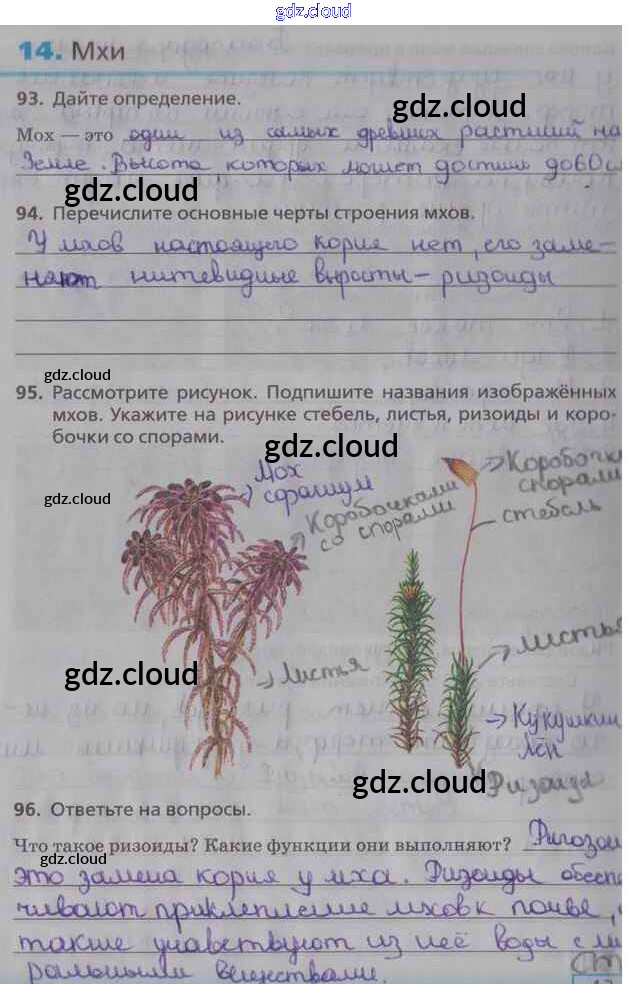 gdz.cloud
14. Мхи
93. Дайте определение.
gdz.cloud
Мох — это один из самых древних растений на
Земле. Высота которых может достичь до 60 с
gdz.cloud
94. Перечислите основные черты строения мхов.
У мхов настоящего корня нет, его заме-
няют нитевидные выросты – ризоиды
gdz.cloud
95. Рассмотрите рисунок. Подпишите названия изображённых
мхов. Укажите на рисунке стебель, листья, ризоиды и коро-
бочки со спорами.
gdz.cloud
gdz.cloud
Мох
сфагнум
Коробочками
со спорами
Коробочк
спорами
стебель
gdz.cloud
Листья
листья
Кукушкин
лен
gdz.cloud
Ризоиды
96. Ответьте на вопросы.
Что такое ризоиды? Какие функции они выполняют?
gdz.cloud
это замена корня у мха. Ризоиды обесп
чивают прикрепление мхов к почве,
также учавствуют из неё воды с ми
ральными веществами.
gdz.cloud